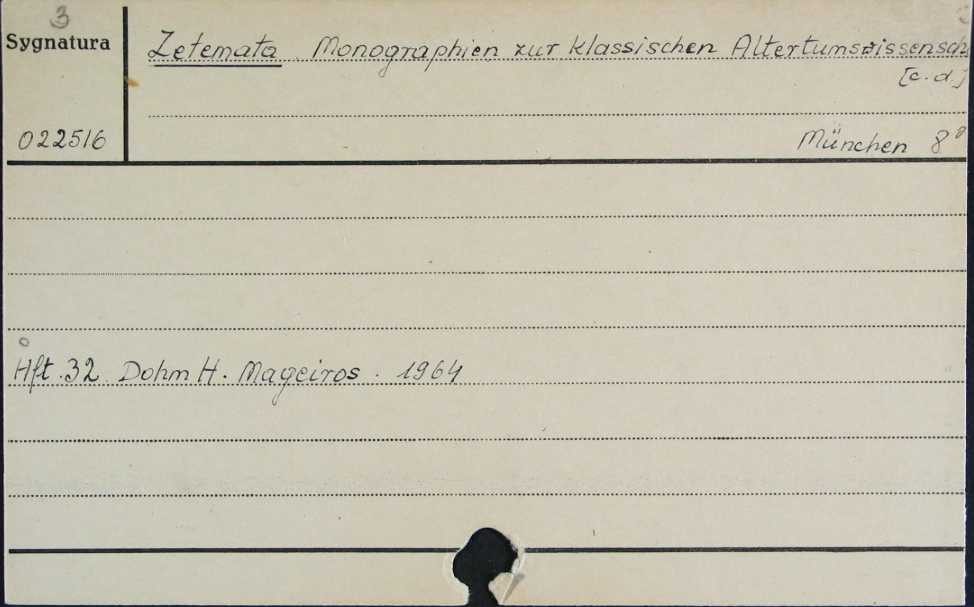 3
Sygnatura
Zetemata. Monographien zur klassischen Altertumswissensch
[c.d.]
022516
München 8°
Hft. 32 Dohm H. Mageiros. 1964